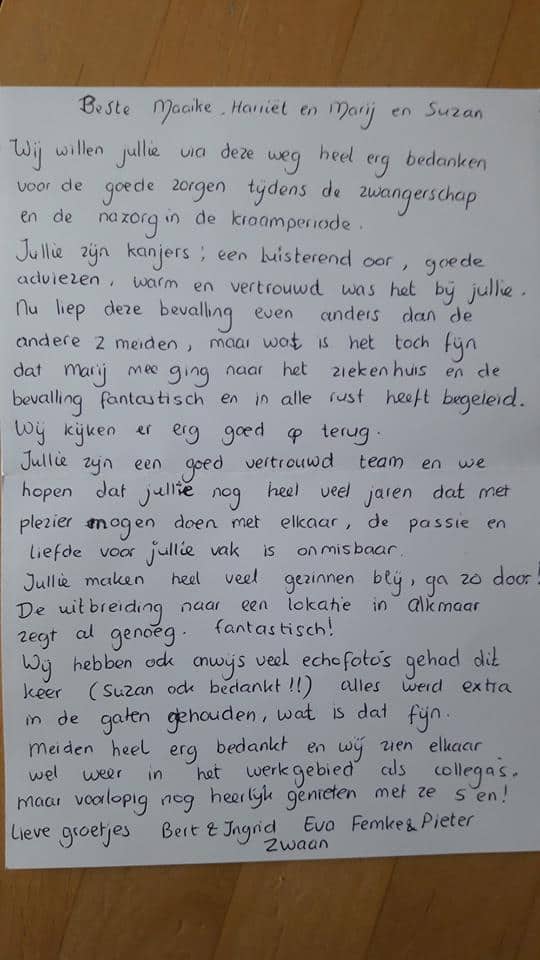 Beste Maaike, Harriët en Marij en Suzan
Wij willen jullie via deze weg heel erg bedanken
voor de goede zorgen tijdens de zwangerschap
en de nazorg in de kraamperiode.
Jullie zijn kanjers; een luisterend oor, goede
adviezen, warm en vertrouwd was het bij jullie.
Nu liep deze bevalling even anders dan de
andere 2 meiden, maar wat is het toch fijn
dat Marij mee ging naar het ziekenhuis en de
bevalling fantastisch en in alle rust heeft begeleid.
Wij kijken er erg goed op terug.
Jullie zijn een goed vertrouwd team en we
hopen dat jullie nog heel veel jaren dat met
plezier mogen doen met elkaar, de passie en
liefde voor jullie vak is onmisbaar.
Jullie maken heel veel gezinnen blij, ga zo door!
De uitbreiding naar een lokatie in Alkmaar
zegt al genoeg. fantastisch!
Wij hebben ook onwijs veel echofoto's gehad dit
keer (Suzan ook bedankt!!) alles werd extra
in de gaten gehouden, wat is dat fijn.
Meiden heel erg bedankt en wij zien elkaar
wel weer in het werkgebied als collega's.
maar voorlopig nog heerlijk genieten met ze 5'en!
Lieve groetjes Bert & Ingrid Eva Femke & Pieter
Zwaan